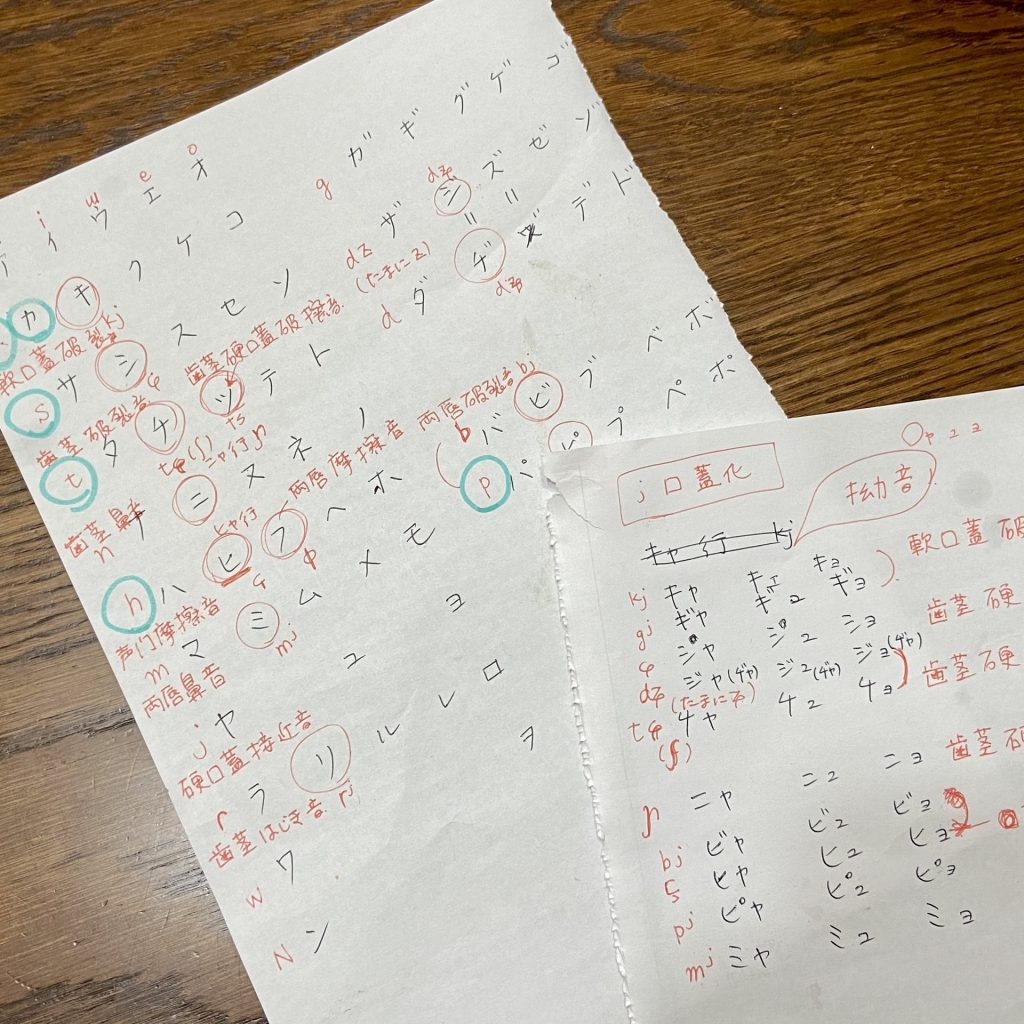 i w e o
イ ウ エ オ
g ガ ギ グ ゲ ゴ
カ キ ク ケ コ
軟口蓋破裂 kj
dz ザ ジ ズ ゼ ゾ
dʑ
(たまにz)
s サ シ ス セ ソ
ɕ
歯茎硬口蓋破擦音
d ダ ヂ ヅ デ ド
dʑ
歯茎破裂音
t タ チ ツ テ ト
tɕ(ʃ) ts
ニャ行 ɲ
歯茎鼻音
n ナ ニ ヌ ネ ノ
両唇破裂音 bj
b バ ビ ブ ベ ボ
両唇摩擦音
ヒャ行
h ハ ヒ フ ヘ ホ
ɸ
p パ ピ プ ペ ポ
声门摩擦音
m マ ミ ム メ モ
mj
両唇鼻音
j ヤ ユ ヨ
硬口蓋接近音
r ラ リ ル レ ロ
歯茎はじき音 rj
w ワ ヲ
N ン
j 口蓋化
拗音
ャ ュ ョ
キャ行 kj
kj キャ キュ キョ
軟口蓋破
gj ギャ ギュ ギョ
ɕ シャ シュ ショ
歯茎硬
dʑ ジャ(ヂャ) ジュ(ヂャ) ジョ(ヂャ)
(たまにʑ)
tɕ チャ チュ チョ
歯茎硬
(ʃ)
ɲ ニャ ニュ ニョ
歯茎硬
bj ビャ ビュ ビョ
ç ヒャ ヒュ ヒョ
pj ピャ ピュ ピョ
mj ミャ ミュ ミョ